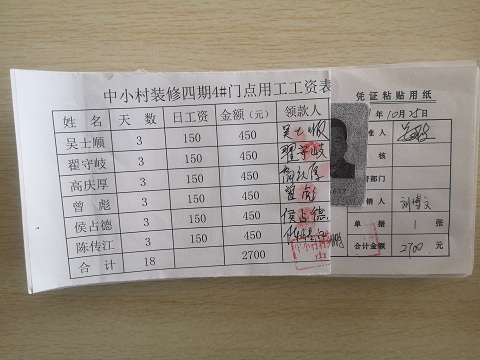 中小村装修四期4#门点用工工资表
姓 名 天 数 日工资 金额(元) 领款人
吴士顺 3 150 450 吴士顺
翟守岐 3 150 450 翟守岐
高庆厚 3 150 450 高庆厚
曾 彪 3 150 450 曾彪
侯占德 3 150 450 侯占德
陈传江 3 150 450
合 计 18 2700
凭证粘贴用纸
年 10月25日
准人
核
部门
销人 刘博文
单 据 1 张
合计金额 2700 元